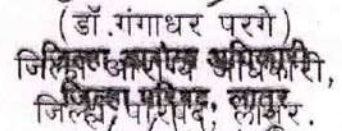 (डॉ.गंगाधर परगे)
जिल्हा आरोग्य अधिकारी,
जिल्हा परिषद, लातूर.